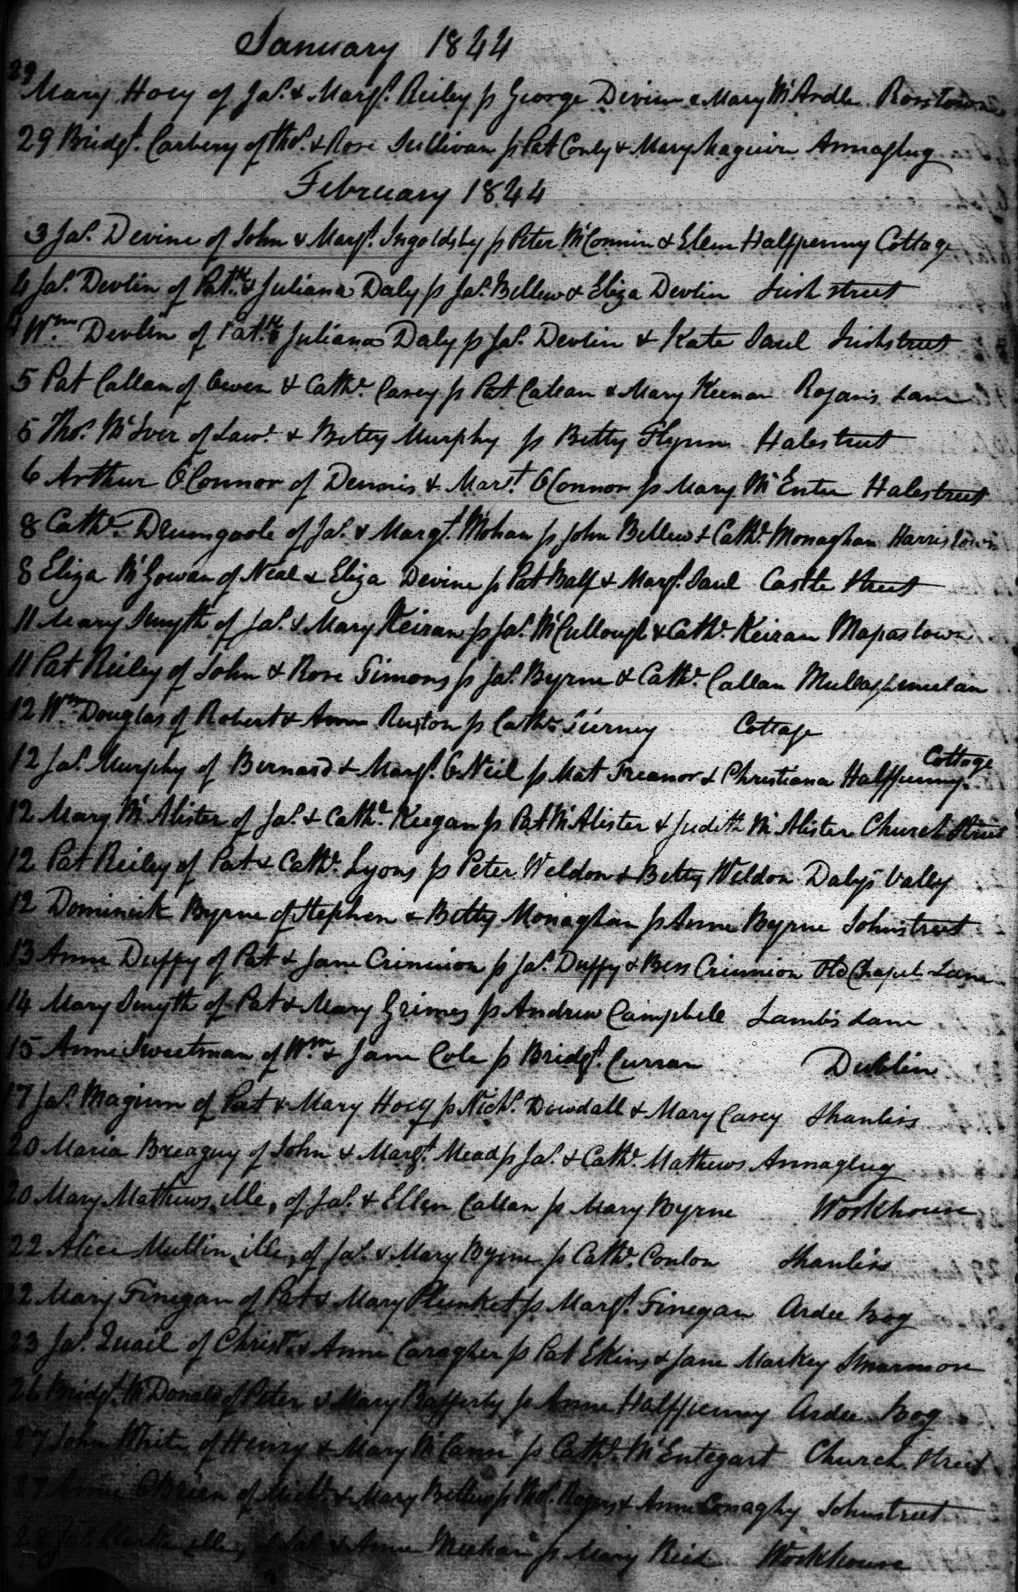 January 1844
29 Mary Hoey of Jas. & Margt. Reiley p George Devine & Mary McArdle Rosstown
29 Bridgt. Carbery of Thos. & Rose Sullivan p Pat Conly & Mary Maguire Annaglug
February 1844
3 Jas. Devine of John & Margt. Ingoldsby p Peter McConnin & Elenr Halfpenny Cottage
4 Jas. Devlin of Patk. & Juliana Daly p Jas. Bellew & Eliza Devlin Irish street
4 Wm. Devlin of Patk. & Juliana Daly p Jas. Devlin & Kate Saul Irishstreet
5 Pat Callan of Owen & Cathe. Casey p Pat Callan & Mary Keenan Rogans Lane
5 Thos. McIver of Lawe. & Betty Murphy p Betty Flynn Halestreet
6 Arthur OConnor of Dennis & Margt. OConnor p Mary McEntee Halestreet
8 Cathe. Drumgoole of Jas. & Margt. Mohan p John Bellew & Cathe. Monaghan Harristown
8 Eliza McGowan of Neal & Eliza Devine p Pat Balf & Margt. Saul Castle Street
11 Mary Smyth of Jas. & Mary Keiran p Jas. McCullough & Cathe. Keiran Mapastown
11 Pat Reiley of John & Rose Timons p Jas. Byrne & Cathe. Callan
12 Wm. Douglas of Robert & Anne Ruxton p Cathe. Tierney Cottage
12 Jas. Murphy of Bernard & Margt. ONeil p Mat Treanor & Christiana Halfpenny Cottage
12 Mary McAlister of Jas. & Cathe. Keegan p Pat McAlister & Judith McAlister Church Street
12 Pat Reiley of Pat & Cathe. Lyons p Peter Weldon & Betty Weldon Dalys Valley
12 Dominick Byrne of Stephen & Betty Monaghan p Anne Byrne Johnstreet
13 Anne Duffy of Pat & Jane Crinnion p Jas. Duffy & Bess Crinnion Old Chapel Lane
14 Mary Smyth of Pat & Mary Grimes p Andrew Campbell Lambs Lane
15 Anne Sweetman of Wm. & Jane Cole p Bridgt. Curran Dublin
17 Jas. Maginn of Pat & Mary Hoey p Nichs. Dowdall & Mary Casey Shanliss
20 Maria Breagny of John & Margt. Mead p Jas. & Cathe. Mathews Annaglug
20 Mary Mathews, ille, of Jas. & Ellen Callan p Mary Byrne Workhouse
22 Alice Mullin, ille, of Jas. & Mary Byrne p Cathe. Conlon Shanliss
22 Mary Finegan of Pat & Mary Plunket p Margt. Finegan Ardee Bog
23 Jas. Quail of Christr. & Anne Caragher p Pat Ekins & Jane Markey Smarmore
26 Bridgt. McDonald of Peter & Mary Rafferty p Anne Halfpenny Ardee Bog
27 John White of Henry & Mary McCann p Cathe. McEntegart Church Street
27 Anne OBrien of Michl. & Mary p Thos. Rogers & Anne Conaghy Johnstreet
Clarke ille, of & Anne Meehan p Mary Reid Workhouse